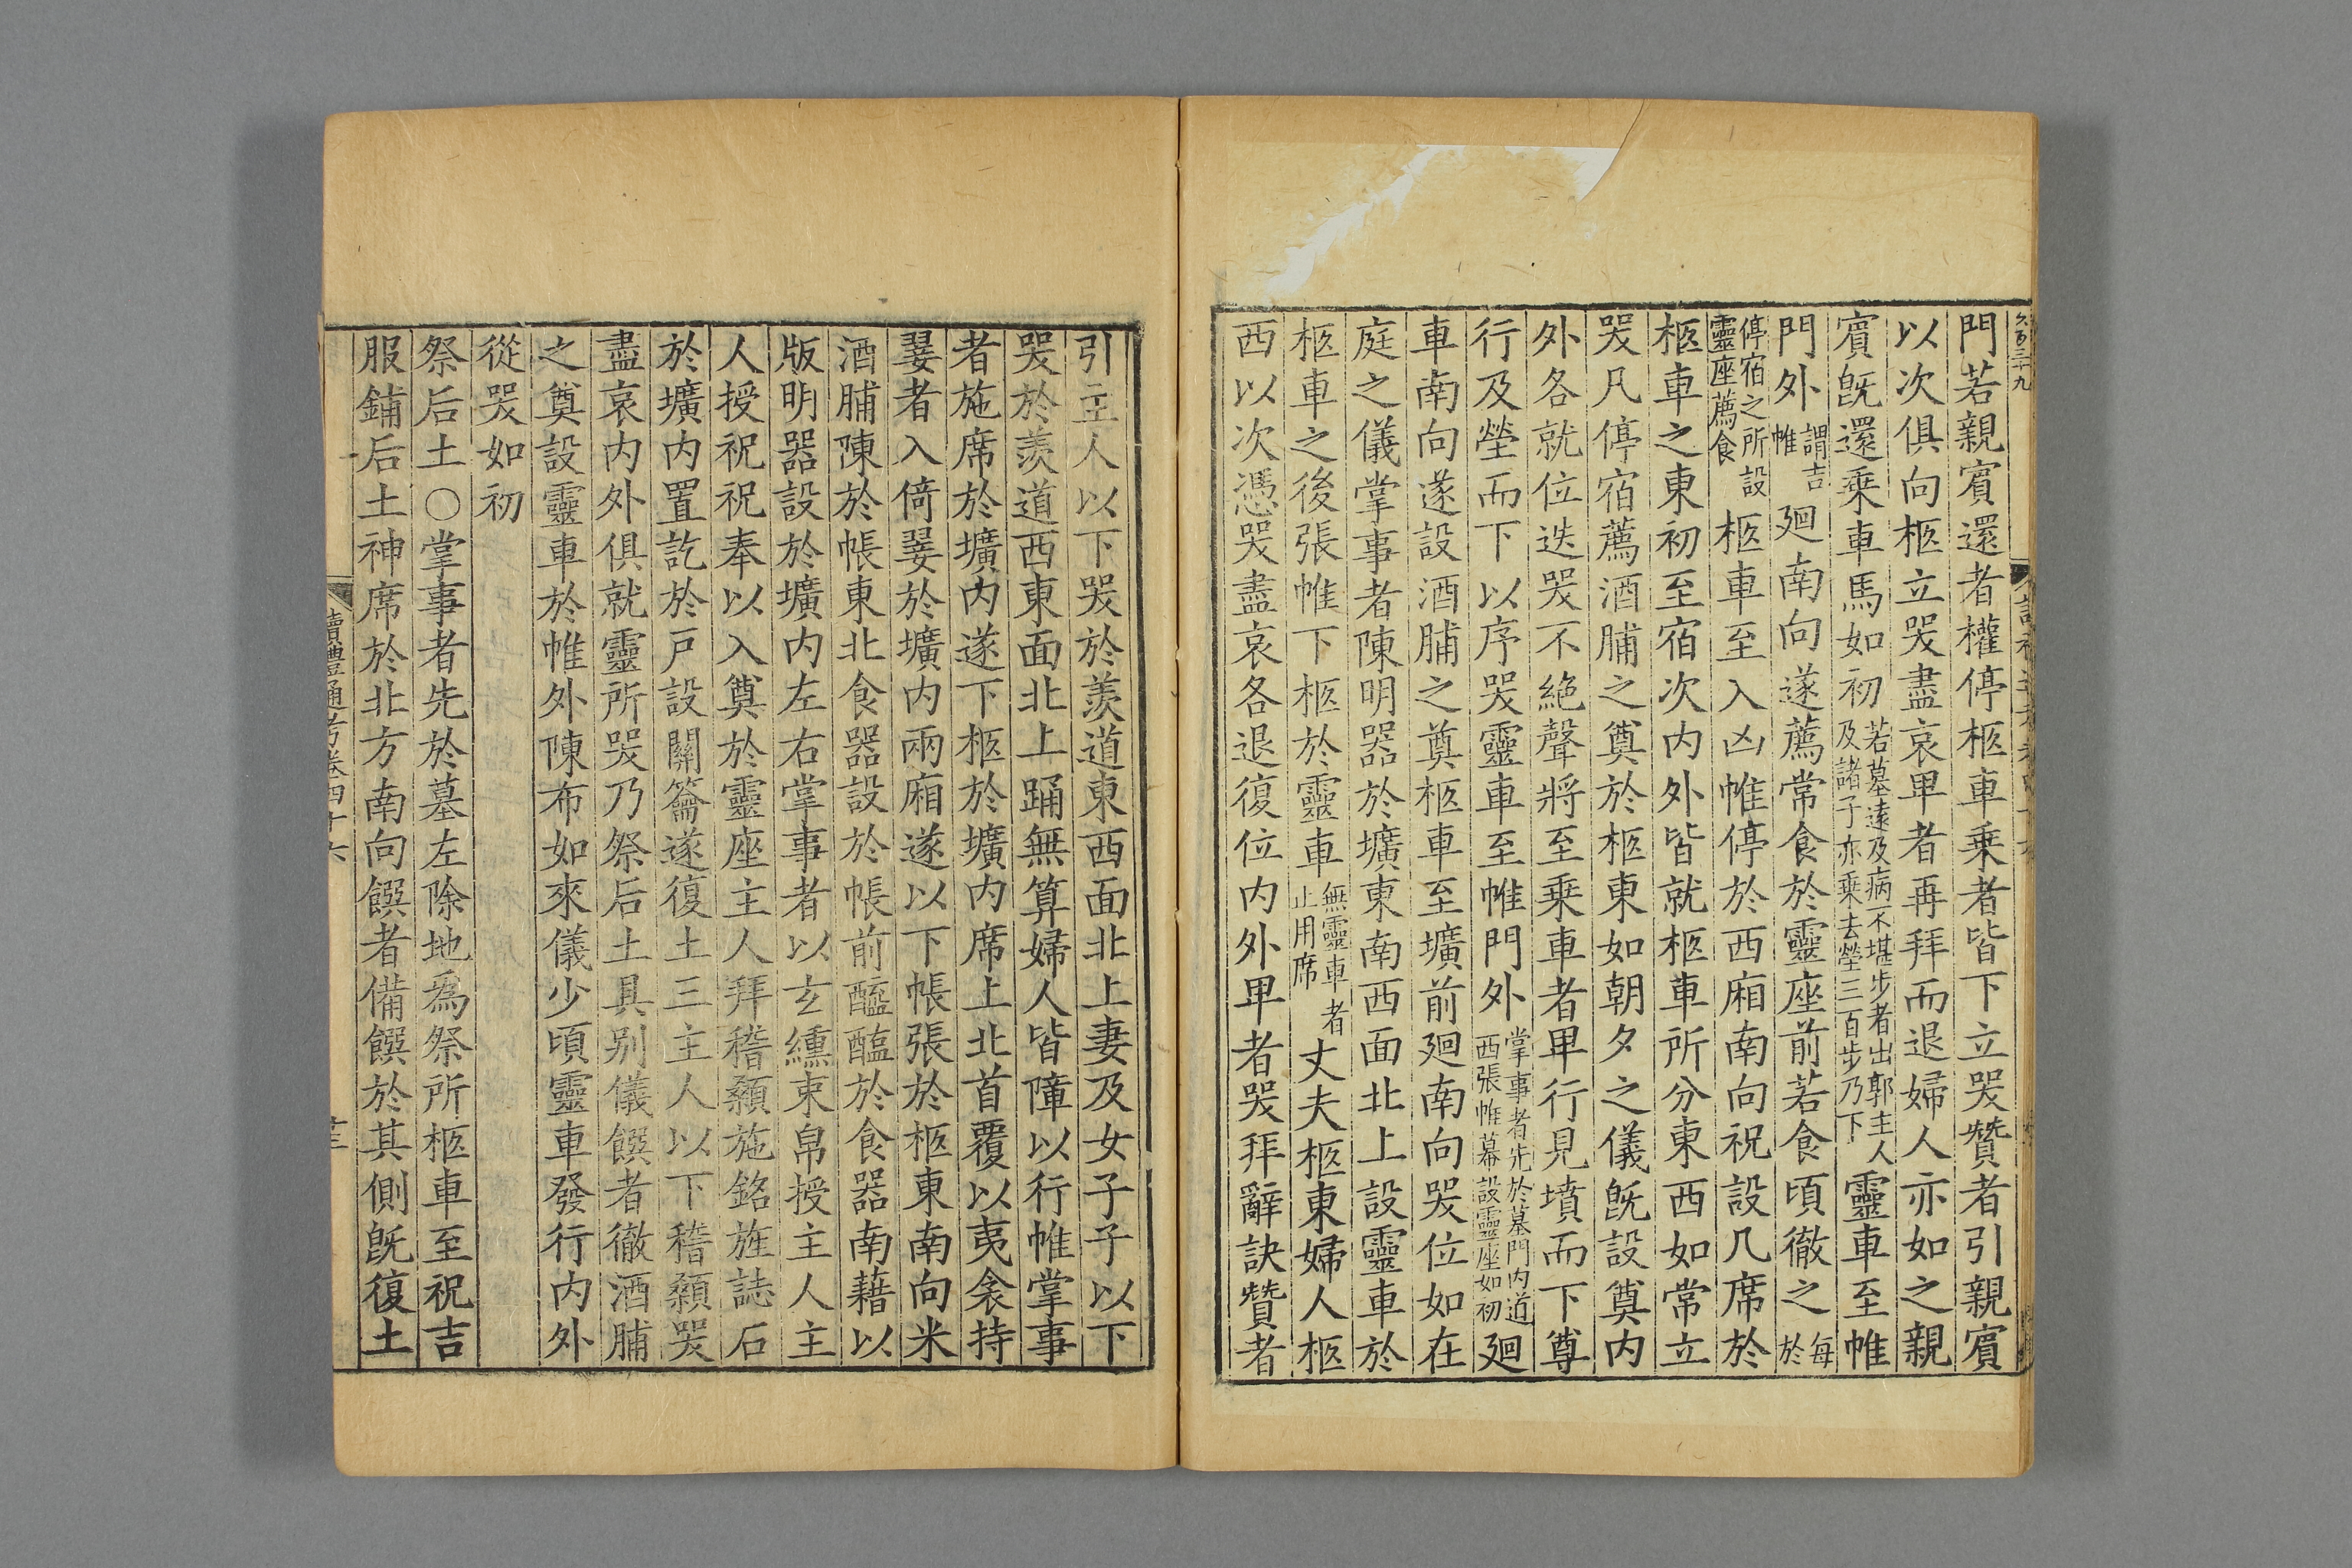 門若親賓還者權停柩車乘者皆下立哭贊者引親賓
以次俱向柩立哭盡哀卑者再拜而退婦人亦如之親
賓旣還乘車馬如初若墓遠及病不堪步者出郭主人及諸子亦乘去塋三百步乃下靈車至帷
門外謂吉帷廻南向遂薦常食於靈座前若食頃徹之每於
停宿之所設靈座薦食柩車至入凶帷停於西廂南向祝設几席於
柩車之東初至宿次内外皆就柩車所分東西如常立
哭凡停宿薦酒脯之奠於柩東如朝夕之儀旣設奠内
外各就位迭哭不絶聲將至乘車者卑行見墳而下尊
行及塋而下以序哭靈車至帷門外掌事者先於墓門内道西張帷幕設靈座如初廻
車南向遂設酒脯之奠柩車至壙前廻南向哭位如在
庭之儀掌事者陳明器於壙東南西面北上設靈車於
柩車之後張帷下柩於靈車無靈車者止用席丈夫柩東婦人柩
西以次憑哭盡哀各退復位内外卑者哭拜辭訣贊者
引主人以下哭於羨道東西面北上妻及女子子以下
哭於羨道西東面北上踊無算婦人皆障以行帷掌事
者施席於壙内遂下柩於壙内席上北首覆以夷衾持
翣者入倚翣於壙内兩廂遂以下帳張於柩東南向米
酒脯陳於帳東北食器設於帳前醯醢於食器南藉以
版明器設於壙内左右掌事者以玄纁束帛授主人主
人授祝祝奉以入奠於靈座主人拜稽顙施銘旌誌石
於壙内置訖於戸設關籥遂復土三主人以下稽顙哭
盡哀内外俱就靈所哭乃祭后土具别儀饌者徹酒脯
之奠設靈車於帷外陳布如來儀少頃靈車發行内外
從哭如初
祭后土〇掌事者先於墓左除地爲祭所柩車至祝吉
服鋪后土神席於北方南向饌者備饌於其側旣復土
讀禮通考卷四十六